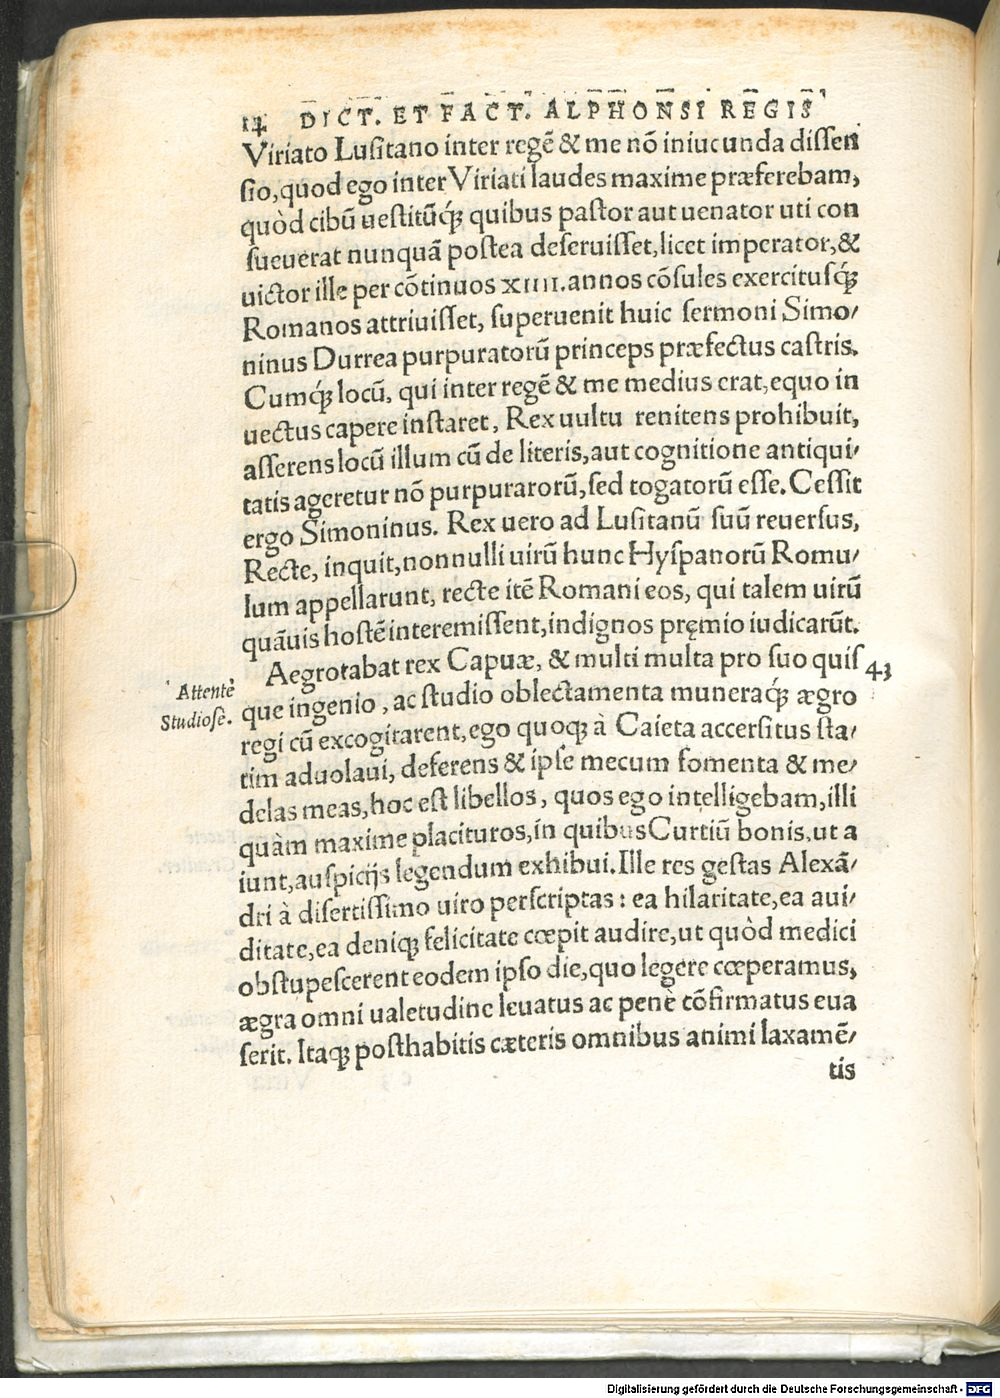 14 DICT. ET FACT. ALPHONSI REGIS
Viriato Luſitano inter regē & me nō iniucunda diſſen
ſio, quod ego inter Viriati laudes maxime præferebam,
quòd cibū ueſtitūq́; quibus paſtor aut uenator uti con
ſueuerat nunquā poſtea deſeruiſſet, licet imperator, &
uictor ille per cōtinuos XIIII. annos cōſules exercituſq́;
Romanos attriuiſſet, ſuperuenit huic ſermoni Simo⸗
ninus Durrea purpuratorū princeps præfectus caſtris.
Cumq́; locū, qui inter regē & me medius erat, equo in
uectus capere inſtaret, Rex uultu renitens prohibuit,
aſſerens locū illum cū de literis, aut cognitione antiqui⸗
tatis ageretur nō purpurarorū, ſed togatorū eſſe. Ceſſit
ergo Simoninus. Rex uero ad Luſitanū ſuū reuerſus,
Recte, inquit, nonnulli uirū hunc Hyſpanorū Romu⸗
lum appellarunt, recte itē Romani eos, qui talem uirū
quāuis hoſtē interemiſſent, indignos pręmio iudicarūt.
Aegrotabat rex Capuæ, & multi multa pro ſuo quiſ 43
Attentè
que ingenio, ac ſtudio oblectamenta muneraq́; ægro
Studiosè.
regi cū excogitarent, ego quoq; à Caieta accerſitus ſta⸗
tim aduolaui, deferens & ipſe mecum fomenta & me⸗
delas meas, hoc eſt libellos, quos ego intelligebam, illi
quàm maxime placituros, in quibus Curtiū bonis, ut a
iunt, auſpicijs legendum exhibui. Ille res geſtas Alexā⸗
dri à diſertiſſimo uiro perſcriptas : ea hilaritate, ea aui⸗
ditate, ea deniq; felicitate cœpit audire, ut quòd medici
obſtupeſcerent eodem ipſo die, quo legere cœperamus,
ægra omni ualetudine leuatus ac penè cōfirmatus eua
ſerit. Itaq; poſthabitis cæteris omnibus animi laxamē⸗
tis
Digitalisierung gefördert durch die Deutsche Forschungsgemeinschaft - DFG